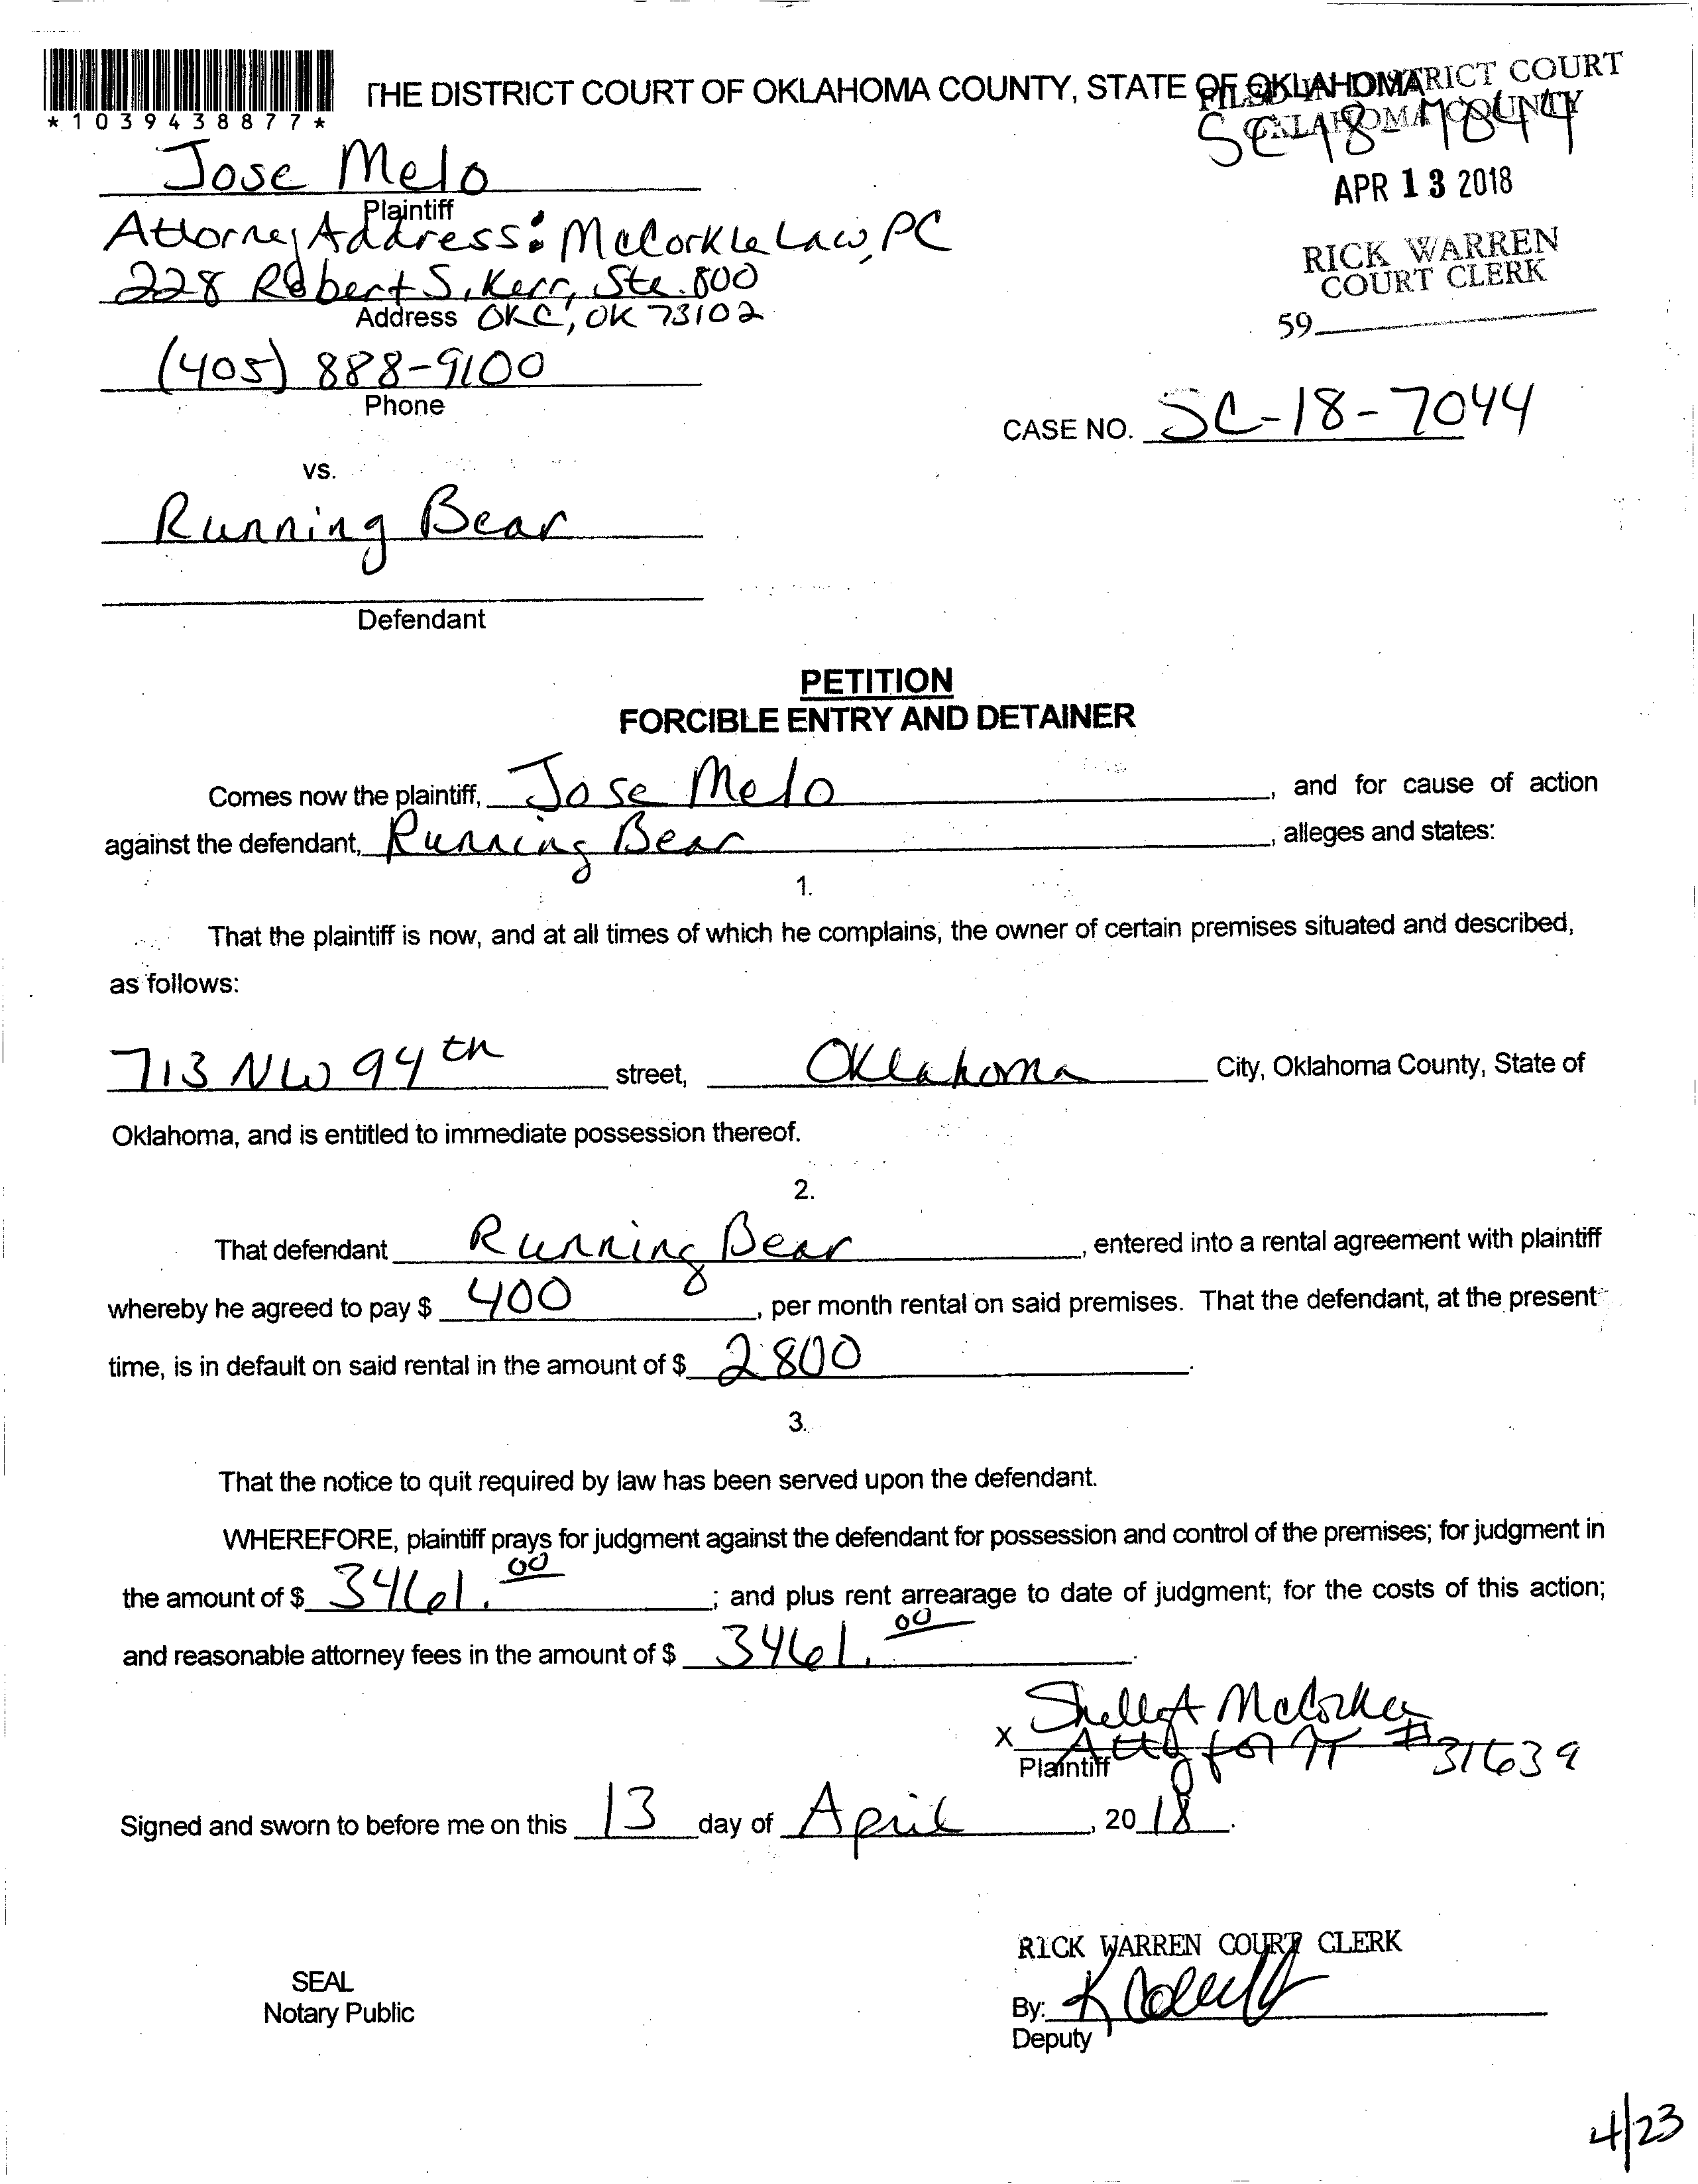 THE DISTRICT COURT OF OKLAHOMA COUNTY, STATE OF OKLAHOMA
FILED IN DISTRICT COURT
OKLAHOMA COUNTY
*1039438877*
SC-18-7044
Jose Melo
Plaintiff
APR 13 2018
Attorney Address: McCorkle Law, PC
228 Robert S. Kerr, Ste. 800
Address OKC, OK 73102
RICK WARREN
COURT CLERK
59
(405) 888-9100
Phone
CASE NO. SC-18-7044
vs.
Running Bear
Defendant
PETITION
FORCIBLE ENTRY AND DETAINER
Comes now the plaintiff, Jose Melo, and for cause of action
against the defendant, Running Bear, alleges and states:
1.
That the plaintiff is now, and at all times of which he complains, the owner of certain premises situated and described,
as follows:
713 NW 94th street, Oklahoma City, Oklahoma County, State of
Oklahoma, and is entitled to immediate possession thereof.
2.
That defendant Running Bear, entered into a rental agreement with plaintiff
whereby he agreed to pay $ 400, per month rental on said premises. That the defendant, at the present
time, is in default on said rental in the amount of $ 2800.
3.
That the notice to quit required by law has been served upon the defendant.
WHEREFORE, plaintiff prays for judgment against the defendant for possession and control of the premises; for judgment in
the amount of $ 3461.00; and plus rent arrearage to date of judgment; for the costs of this action;
and reasonable attorney fees in the amount of $ 3461.00.
x Shelley A McCorkle
Atty for π #31639
Plaintiff
Signed and sworn to before me on this 13 day of April, 2018.
RICK WARREN COURT CLERK
SEAL
Notary Public
By:
Deputy
4/23